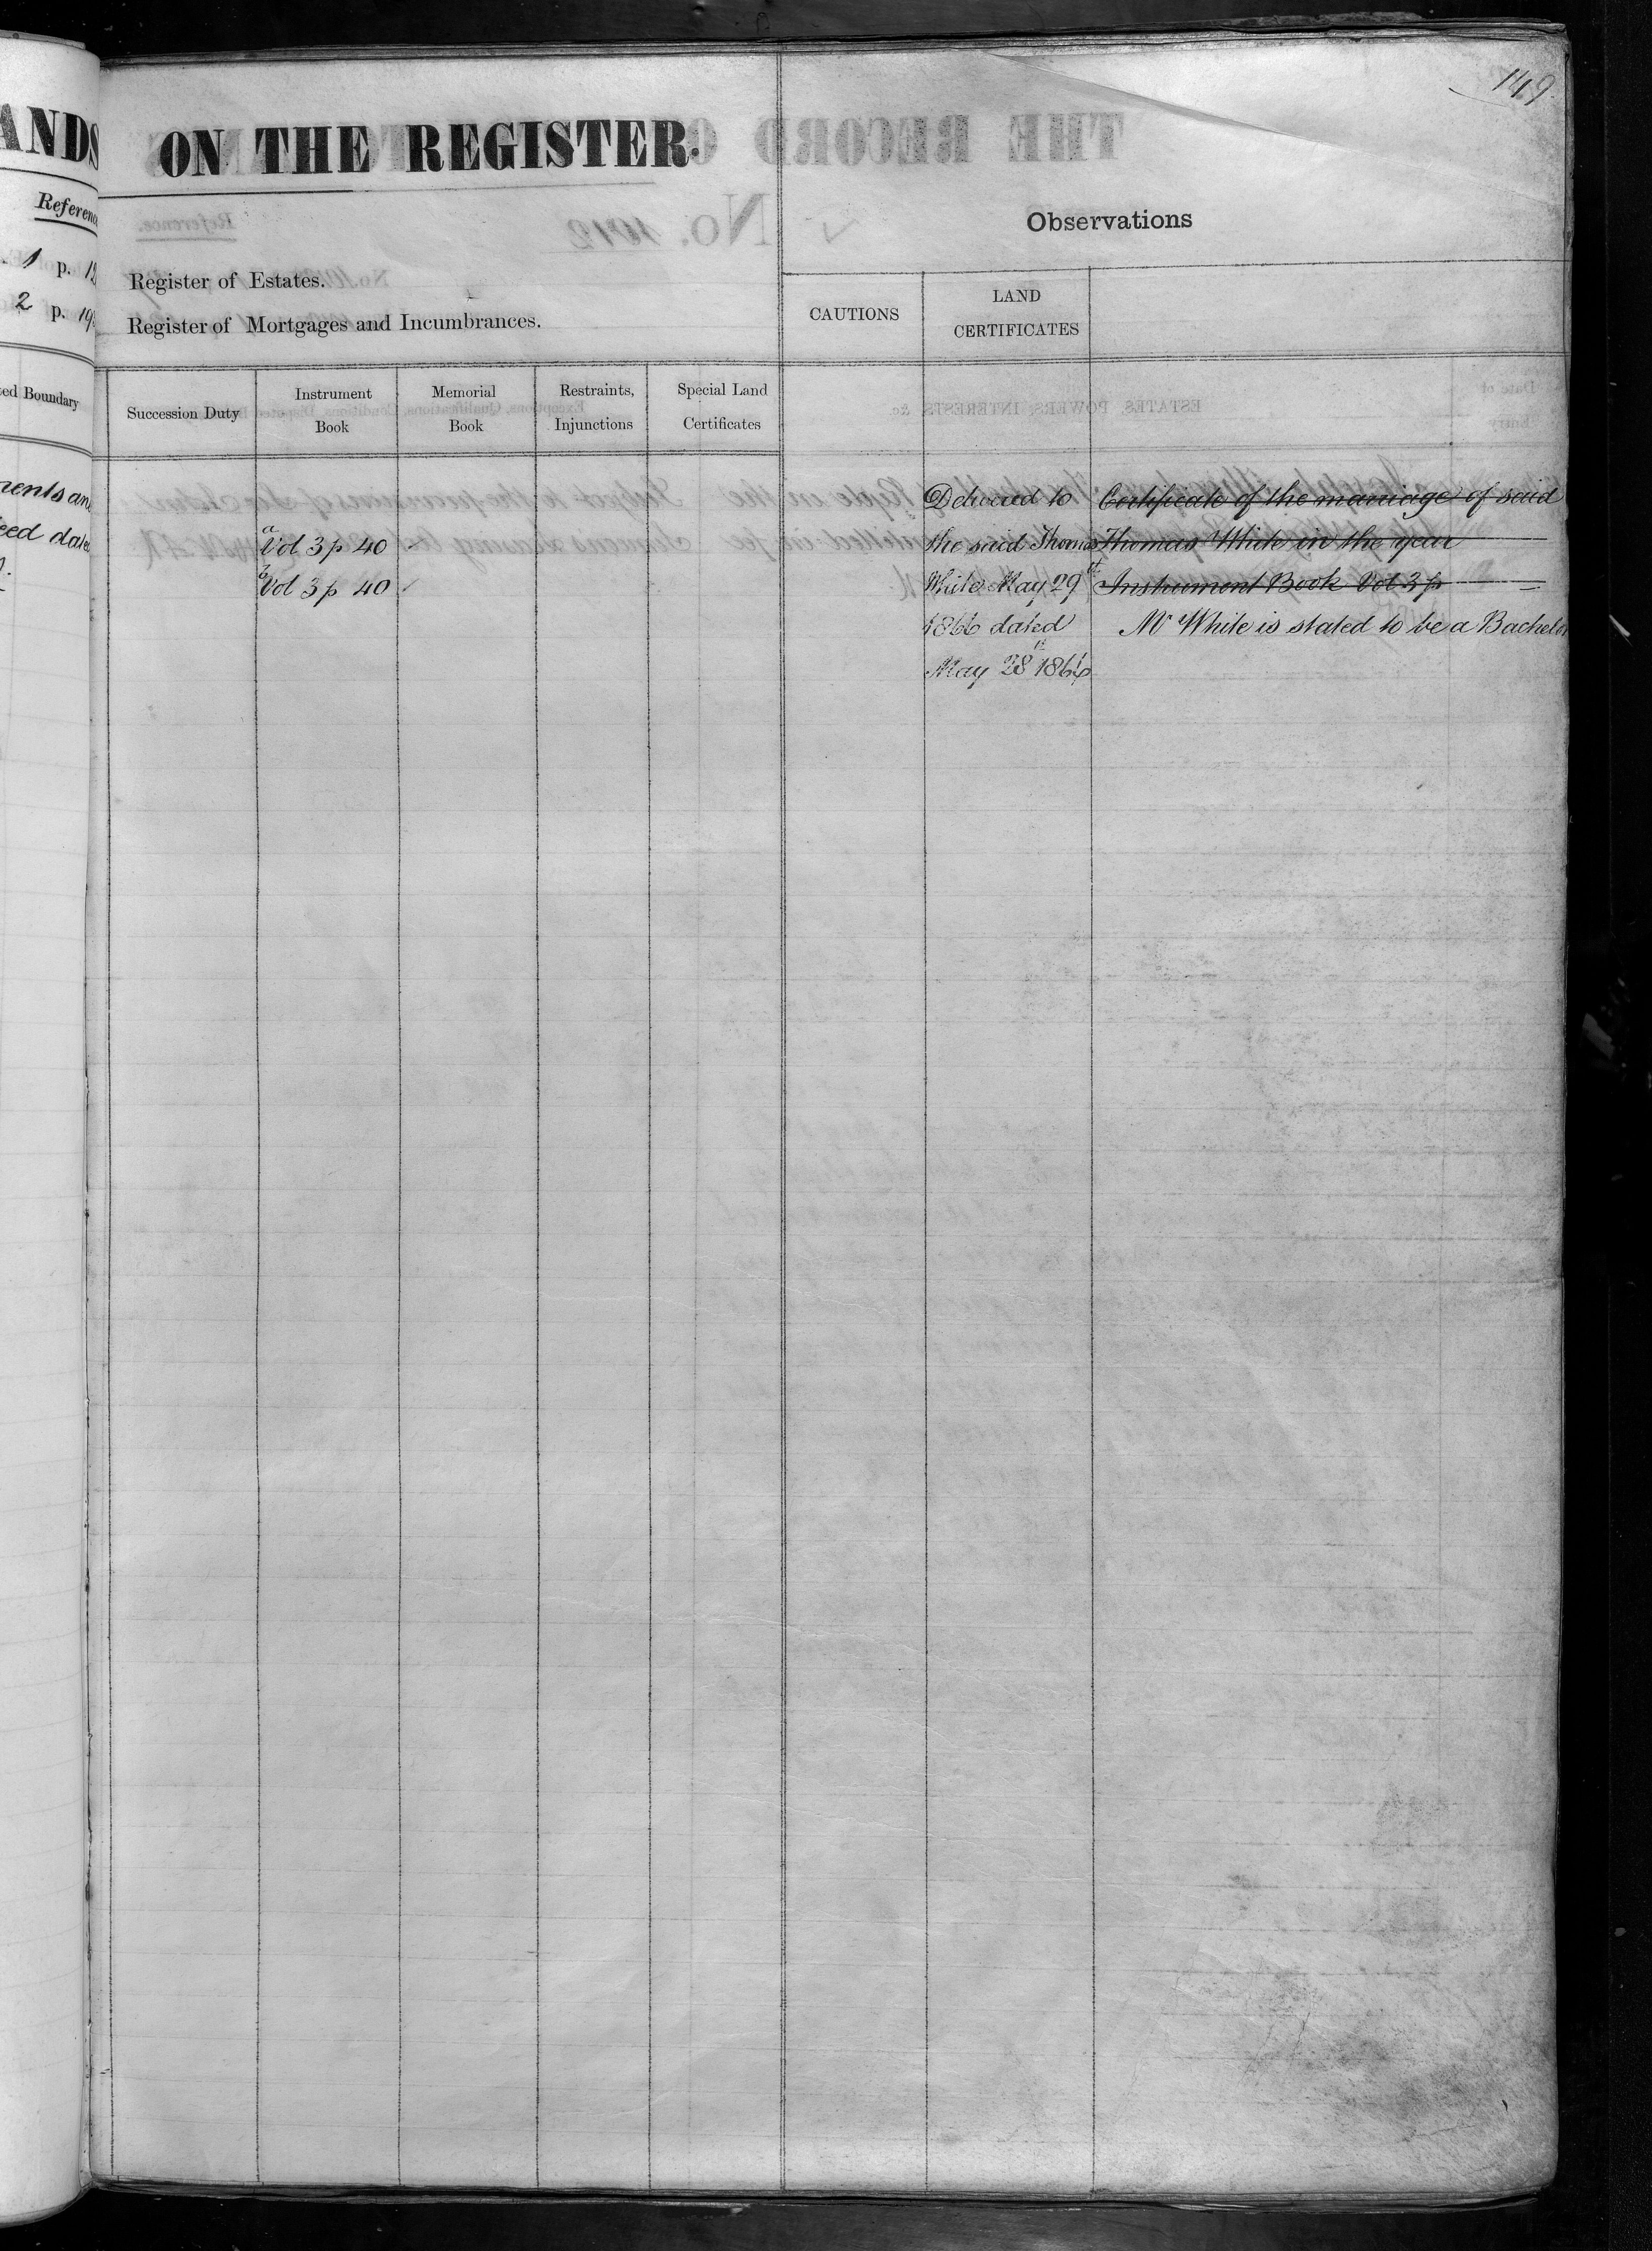 149
ANDS ON THE REGISTER.
Observations
Register of Estates.
Register of Mortgages and Incumbrances.
1 p.
2 p.
CAUTIONS
LAND
CERTIFICATES
ted Boundary
Succession Duty
Instrument
Book
Memorial
Book
Restraints,
Injunctions
Special Land
Certificates
ments an
eed dated
a
Vol 3 p 40
b
Vol 3 p 40
Delivered to
the said Thomas
White May 29th
1866 dated
May 28th 1866
Certificate of the marriage of said
Thomas White in the year
Instrument Book Vol 3 p
Mr White is stated to be a Bachelor